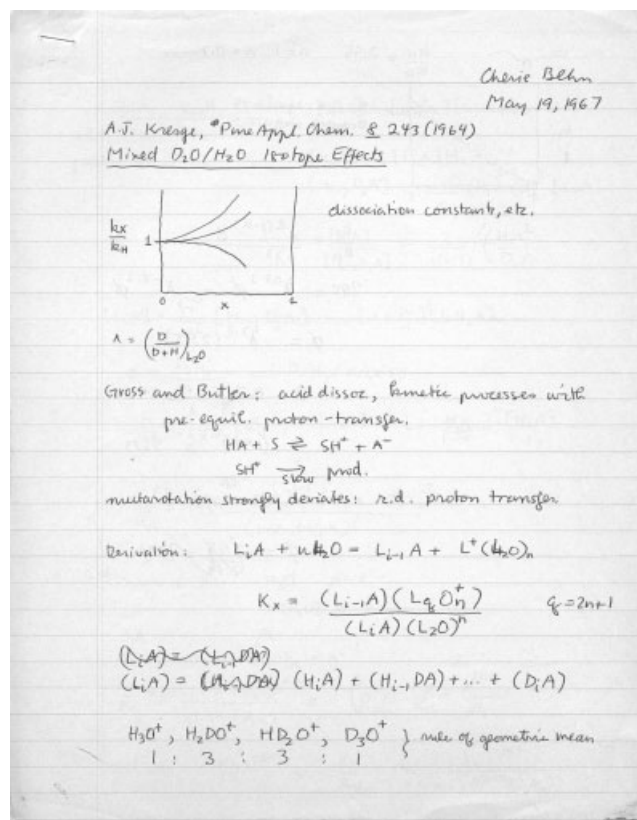 Cherie Behn
May 19, 1967
A.J. Kresge, Pure Appl. Chem. 8 243 (1964)
Mixed D₂O/H₂O Isotope Effects
dissociation constants, etc.
kx/kH
1
0
x
1
x = (D/(D+H))L₂O
Gross and Butler: acid dissoc, kinetic processes with
pre-equil. proton-transfer.
HA + S ⇌ SH⁺ + A⁻
SH⁺ → slow prod.
mutarotation strongly deviates: r.d. proton transfer
Derivation: LᵢA + nL₂O = Lᵢ₋₁A + L⁺(L₂O)ₙ
Kx = (Lᵢ₋₁A)(LqOₙ⁺) / (LᵢA)(L₂O)ⁿ q = 2n+1
(LᵢA) = (Hᵢ₋₁DA)
(LᵢA) = (HᵢA) + (Hᵢ₋₁DA) + ... + (DᵢA)
H₃O⁺, H₂DO⁺, HD₂O⁺, D₃O⁺ } rule of geometric mean
1 : 3 : 3 : 1